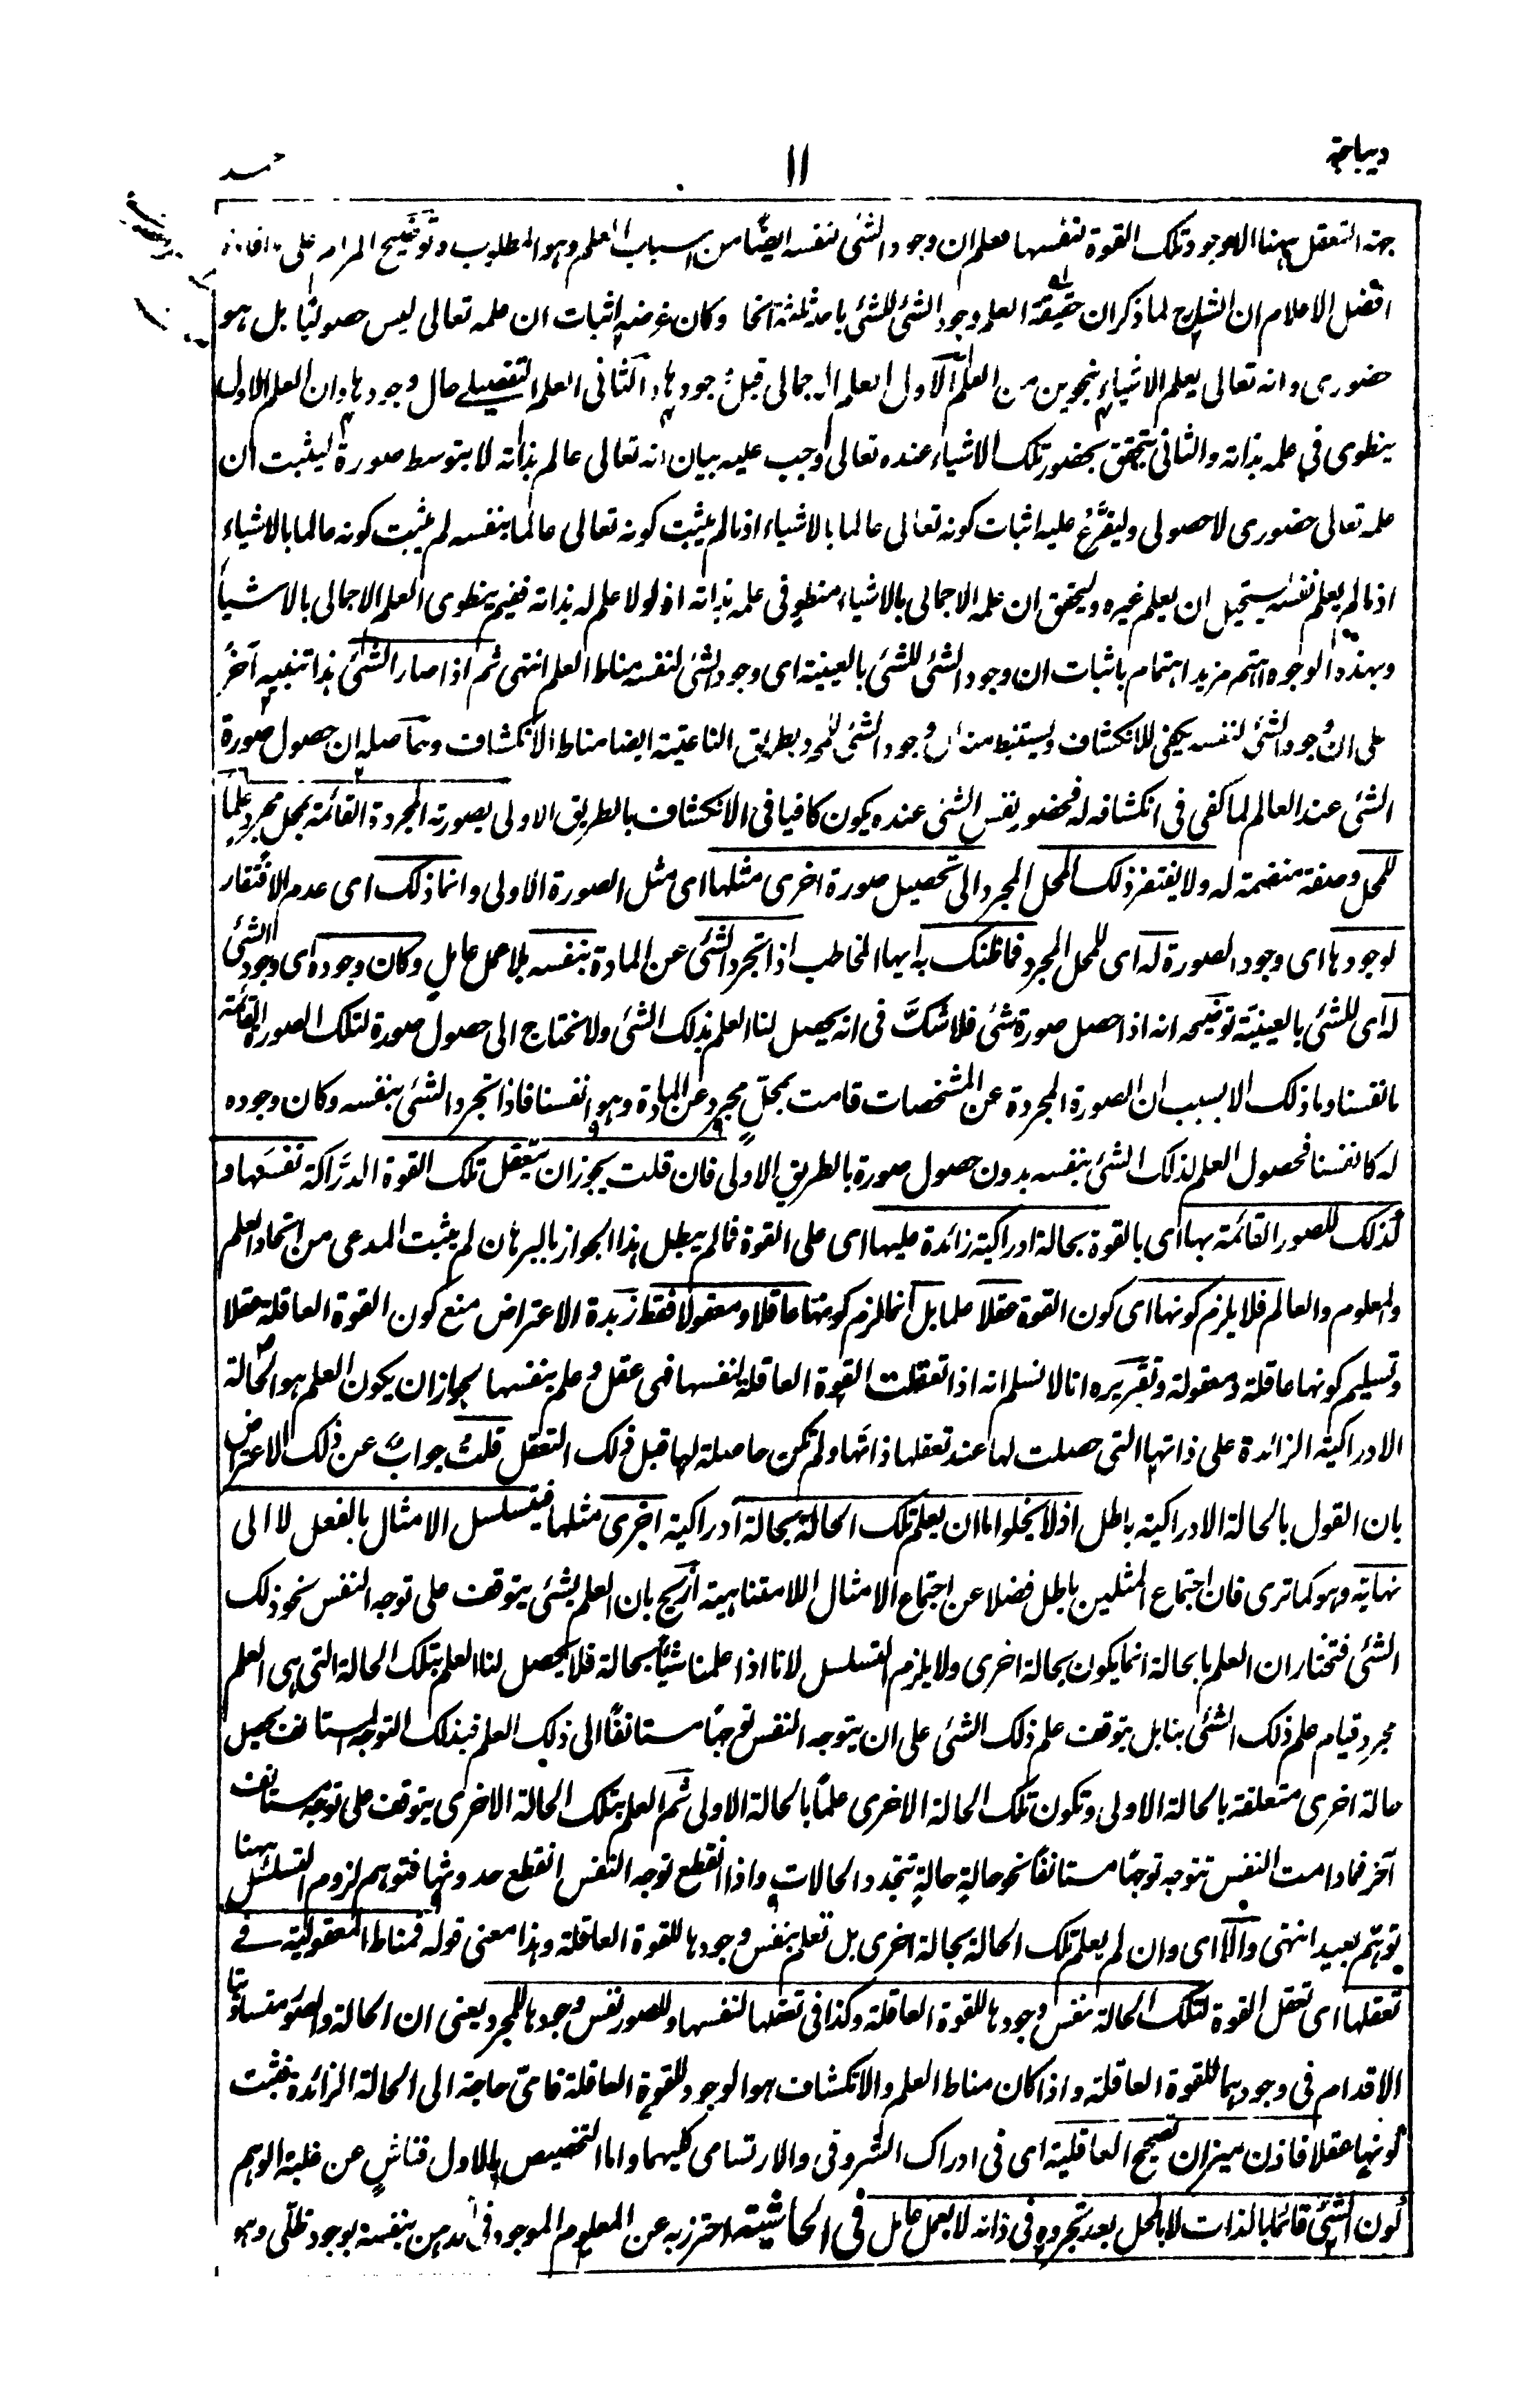 ديباجة ١١ حمد
جهة التعقل ههنا الا وجود تلك القوة لنفسها فعلم ان وجود الشئ لنفسه ايضًا من اسباب العلم وهو المطلوب وتوضيح المرام على ما افاده
افضل الاعلام ان الشارح لما ذكر ان حقيقة العلم وجود الشئ للشئ باحد ثلثة انحا وكان غرضه اثبات ان علمه تعالى ليس حصوليًا بل هو
حضورى وانه تعالى يعلم الاشياء بنحوين من العلم الاول العلم الاجمالى قبل وجودها والثانى العلم التفصيلے حال وجودها وان العلم الاول
ينطوى فى علمه بذاته والثانى يتحقق بحضور تلك الاشياء عنده تعالى اوجب عليه بيان انه تعالى عالم بذاته لا بتوسط صورة ليثبت ان
علمه تعالى حضورى لا حصولى وليفرَّع عليه اثبات كونه تعالى عالما بالاشياء اذ ما لم يثبت كونه تعالى عالما بنفسه لم يثبت كونه عالما بالاشياء
اذ ما لم يعلم نفسه يستحيل ان يعلم غيره وليحقق ان علمه الاجمالى بالاشياء منطوٍ فى علمه بذاته اذ لولا علم له بذاته ففيم ينطوى العلم الاجمالى بالاشياء
وبهذه الوجوه اهتم مزيد اهتمام باثبات ان وجود الشئ للشئ بالعينية اى وجود الشئ لنفسه مناط العلم انتهى ثم اذا صار الشئ هذا تنبيه آخر
على ان وجود الشئ لنفسه يكفى للانكشاف ويستنبط منه ان وجود الشئ للمجرد بطريق الناعتية ايضا مناط الانكشاف وحاصله ان حصول صورة
الشئ عند العالم لما كفى فى انكشافه له فحضور نفس الشئ عنده يكون كافيا فى الانكشاف بالطريق الاولى بصورته المجردة القائمة بمحل مجرد علما
للمحل وصفة منضمة له ولا يفتقر ذلك المحل المجرد الى تحصيل صورة اخرى مثلها اى مثل الصورة الاولى وانما ذلك اى عدم الافتقار
لوجودها اى وجود الصورة له اى للمحل المجرد فما ظنك به ايها المخاطب اذا تجرد الشئ عن المادة بنفسه بلا عمل عاملٍ وكان وجوده اى وجود الشئ
له اى للشئ بالعينية توضيحه انه اذا حصل صورة شئ فلا شكَّ فى انه يحصل لنا العلم بذلك الشئ ولا نحتاج الى حصول صورة لتلك الصورة القائمة
بانفسنا وما ذلك الا بسبب ان الصورة المجردة عن المشخصات قامت بمحلٍّ مجردٍ عن المادة وهو انفسنا فاذا تجرد الشئ بنفسه وكان وجوده
له كانفسنا فحصول العلم لذلك الشئ بنفسه بدون حصول صورة بالطريق الاولى فان قلت يجوز ان يتعقل تلك القوة الدرَّاكة نفسَها و
كذلك للصور القائمة بها اى بالقوة بحالة ادراكية زائدة عليها اى على القوة فما لم يبطل هذا الجواز بالبرهان لم يثبت المدعى من اتحاد العلم
والمعلوم والعالم فلا يلزم كونها اى كون القوة عقلا علما بل انما لزم كونها عاقلا ومعقولا فقط زبدة الاعتراض منع كون القوة العاقلة عقلا
وتسليم كونها عاقلة ومعقولة وتقريره انا لا نسلم انه اذا تعقلت القوة العاقلة لنفسها فهى عقل وعلم بنفسها لجواز ان يكون العلم هو الحالة
الادراكية الزائدة على ذاتها التى حصلت لها عند تعقلها ذاتها ولم تكن حاصلة لها قبل ذلك التعقل قلتُ جوابٌ عن ذلك الاعتراض
بان القول بالحالة الادراكية باطل اذ لا يخلوا ما ان يعلم تلك الحالة بحالة ادراكية اخرى مثلها فيتسلسل الامثال بالفعل لا الى
نهاية وهو كما ترى فان اجتماع المثلين باطل فضلا عن اجتماع الامثال اللامتناهية ازيح بان العلم بشئ يتوقف على توجه النفس نحو ذلك
الشئ فنختار ان العلم بالحالة انما يكون بحالة اخرى ولا يلزم التسلسل لانا اذا علمنا شيئًا بحالة فلا يحصل لنا العلم بتلك الحالة التى هى العلم
مجرد قيام علم ذلك الشئ بنا بل يتوقف علم ذلك الشئ على ان يتوجه النفس توجهًا مستانفًا الى ذلك العلم فبذلك التوجه المستانف يحصل
حالة اخرى متعلقة بالحالة الاولى وتكون تلك الحالة الاخرى علمًا بالحالة الاولى ثم العلم بتلك الحالة الاخرى يتوقف على توجه مستانف
آخر فما دامت النفس تتوجه توجهًا مستانفًا نحو حالةٍ حالةٍ تتجدد الحالات واذا انقطع توجه النفس انقطع حدوثها فتوهم لزوم التسلسل ههنا
توهّم بعيد انتهى والّا اى وان لم يعلم تلك الحالة بحالة اخرى بل تعلم بنفس وجودها للقوة العاقلة وهذا معنى قوله فمناط المعقولية فے
تعقلها اى تعقل القوة لتلك الحالة نفس وجودها للقوة العاقلة وكذا فى تعقلها لنفسها وللصور نفس وجودها للمجرد يعنى ان الحالة والصور متساويتا
الاقدام فى وجودهما للقوة العاقلة واذا كان مناط العلم والانكشاف هو الوجود للقوة العاقلة فاىّ حاجة الى الحالة الزائدة فثبت
كونها عقلا فاذن ميزان تصحيح العاقلية اى فى ادراك الشروقى والارتسامى كليهما واما التخصيص بالاول فناشٍ عن غلبة الوهم
كون الشئ قائما بالذات لا بالمحل بعد تجرده فى ذاته لا بعمل عامل فى الحاشية احترز به عن المعلوم الموجود فى الذهن بنفسه بوجود ظلّى وهو